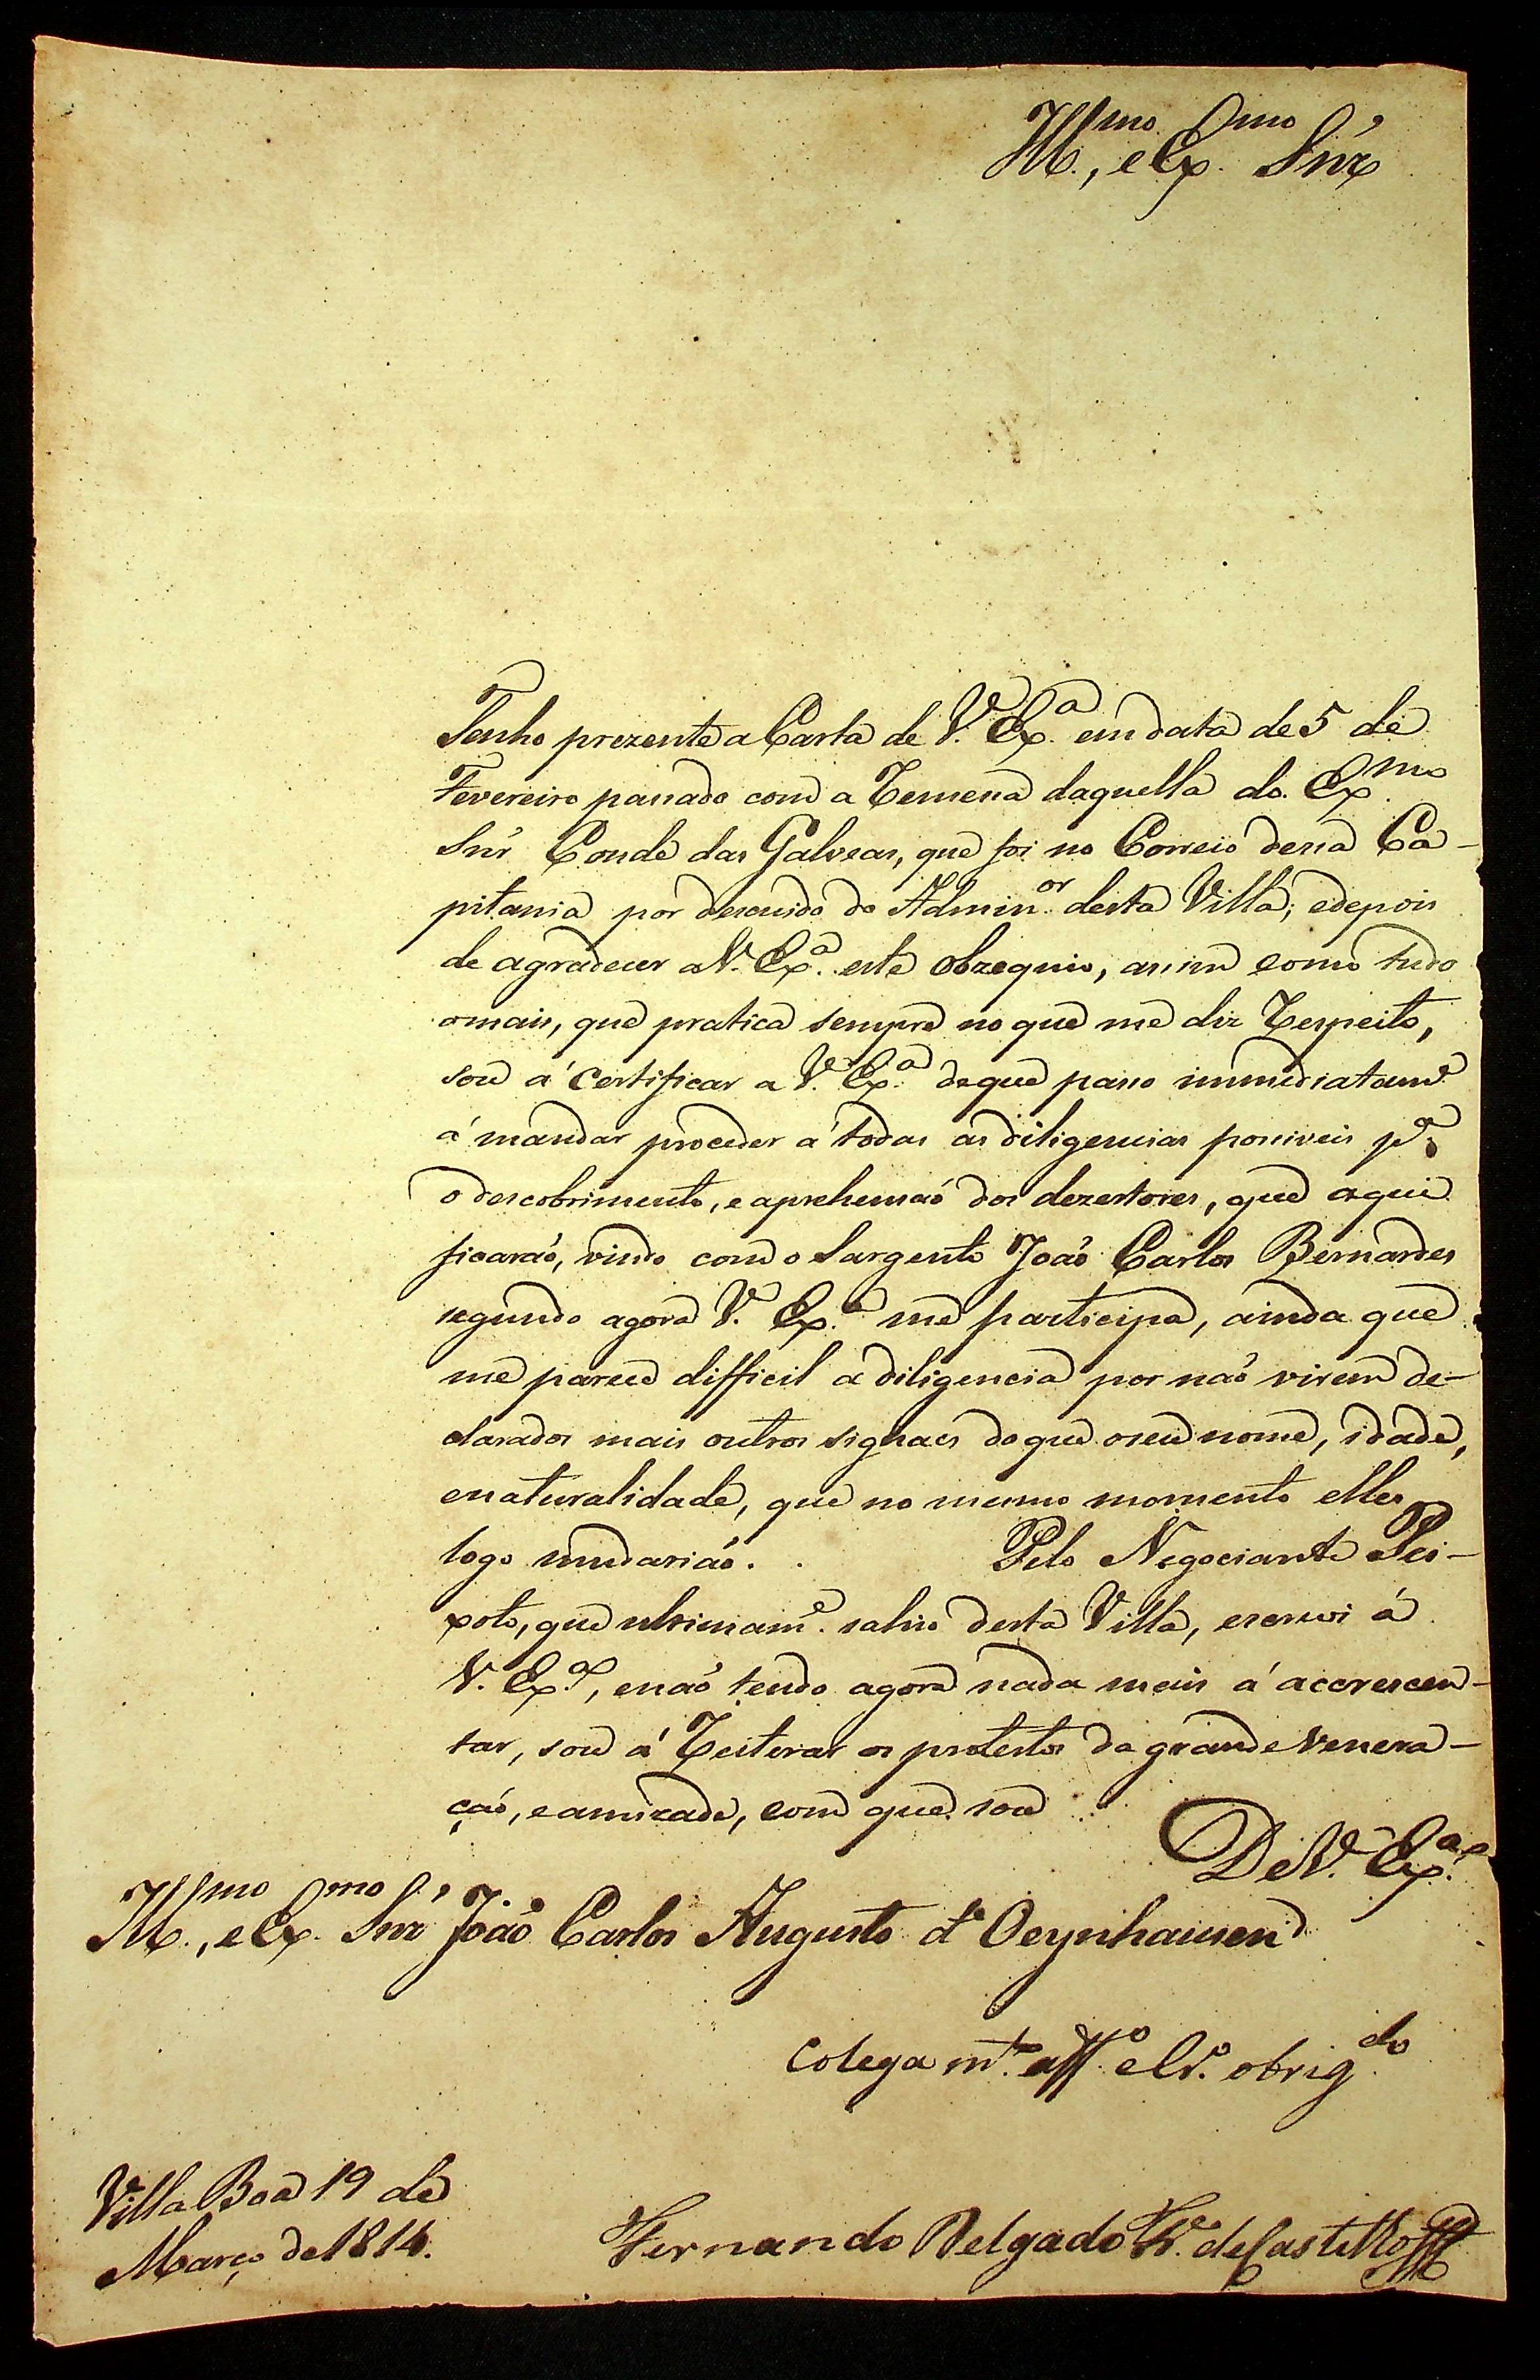 Ill.mo, e Ex.mo Snr'
Tenho prezente a Carta de V. Ex.a em data de 5 de
Fevereiro passado com a Remessa daquella do Ex.mo
Snr' Conde das Galveas, que foi no Correio dessa Ca-
pitania por descuido do Admin.or desta Villa; edepois
de agradecer aV. Ex.a este obzequio, assim como tudo
omais, que pratica sempre no que me diz Respeito,
sou á certificar a V. Ex.a deque passo immediatam.e
á mandar proceder á todas as diligencias possiveis p.a
o descobrimento, e aprehensaõ dos dezertores, que aqui
ficaraõ, vindo com o Sargento Joaõ Carlos Bernardes
segundo agora V. Ex.a me participa, ainda que
me parece difficil a diligencia por naõ virem de-
clarados mais outros signaes doque oseu nome, idade,
enaturalidade, que no mesmo momento elles
logo mudariaõ. Pelo Negociante Pei-
xoto, que ultimam.e sahio desta Villa, escrevi á
V. Ex.a, enaõ tendo agora nada mais á accrescen-
tar, sou á Reiterar os protestos da grande venera-
çaõ, eamizade, com que sou
DeV. Ex.a
Ill.mo, e Ex.mo Snr' Joaõ Carlos Augusto d'Oeynhausen
Colega m.to aff.o e Cr.o obrig.do
Villa Boa 19 de
Março de 1814.
Fernando Delgado Fr.e deCastilho